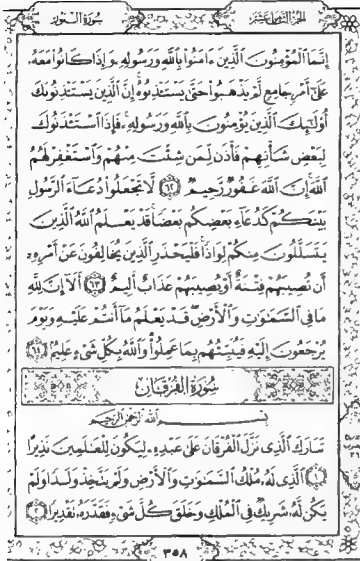 الجزء الثامن عشر
سورة النور
إِنَّمَا ٱلْمُؤْمِنُونَ ٱلَّذِينَ ءَامَنُوا۟ بِٱللَّهِ وَرَسُولِهِۦ وَإِذَا كَانُوا۟ مَعَهُۥ
عَلَىٰٓ أَمْرٍ جَامِعٍ لَّمْ يَذْهَبُوا۟ حَتَّىٰ يَسْتَـْٔذِنُوهُ إِنَّ ٱلَّذِينَ يَسْتَـْٔذِنُونَكَ
أُو۟لَـٰٓئِكَ ٱلَّذِينَ يُؤْمِنُونَ بِٱللَّهِ وَرَسُولِهِۦ فَإِذَا ٱسْتَـْٔذَنُوكَ
لِبَعْضِ شَأْنِهِمْ فَأْذَن لِّمَن شِئْتَ مِنْهُمْ وَٱسْتَغْفِرْ لَهُمُ
ٱللَّهَ إِنَّ ٱللَّهَ غَفُورٌ رَّحِيمٌ ٦٢ لَّا تَجْعَلُوا۟ دُعَآءَ ٱلرَّسُولِ
بَيْنَكُمْ كَدُعَآءِ بَعْضِكُم بَعْضًا قَدْ يَعْلَمُ ٱللَّهُ ٱلَّذِينَ
يَتَسَلَّلُونَ مِنكُمْ لِوَاذًا فَلْيَحْذَرِ ٱلَّذِينَ يُخَالِفُونَ عَنْ أَمْرِهِۦٓ
أَن تُصِيبَهُمْ فِتْنَةٌ أَوْ يُصِيبَهُمْ عَذَابٌ أَلِيمٌ ٦٣ أَلَآ إِنَّ لِلَّهِ
مَا فِى ٱلسَّمَـٰوَٰتِ وَٱلْأَرْضِ قَدْ يَعْلَمُ مَآ أَنتُمْ عَلَيْهِ وَيَوْمَ
يُرْجَعُونَ إِلَيْهِ فَيُنَبِّئُهُم بِمَا عَمِلُوا۟ وَٱللَّهُ بِكُلِّ شَىْءٍ عَلِيمٌ ٦٤
سورة الفرقان
بِسْمِ ٱللَّهِ ٱلرَّحْمَـٰنِ ٱلرَّحِيمِ
تَبَارَكَ ٱلَّذِى نَزَّلَ ٱلْفُرْقَانَ عَلَىٰ عَبْدِهِۦ لِيَكُونَ لِلْعَـٰلَمِينَ نَذِيرًا
١ ٱلَّذِى لَهُۥ مُلْكُ ٱلسَّمَـٰوَٰتِ وَٱلْأَرْضِ وَلَمْ يَتَّخِذْ وَلَدًا وَلَمْ
يَكُن لَّهُۥ شَرِيكٌ فِى ٱلْمُلْكِ وَخَلَقَ كُلَّ شَىْءٍ فَقَدَّرَهُۥ تَقْدِيرًا ٢
٣٥٨